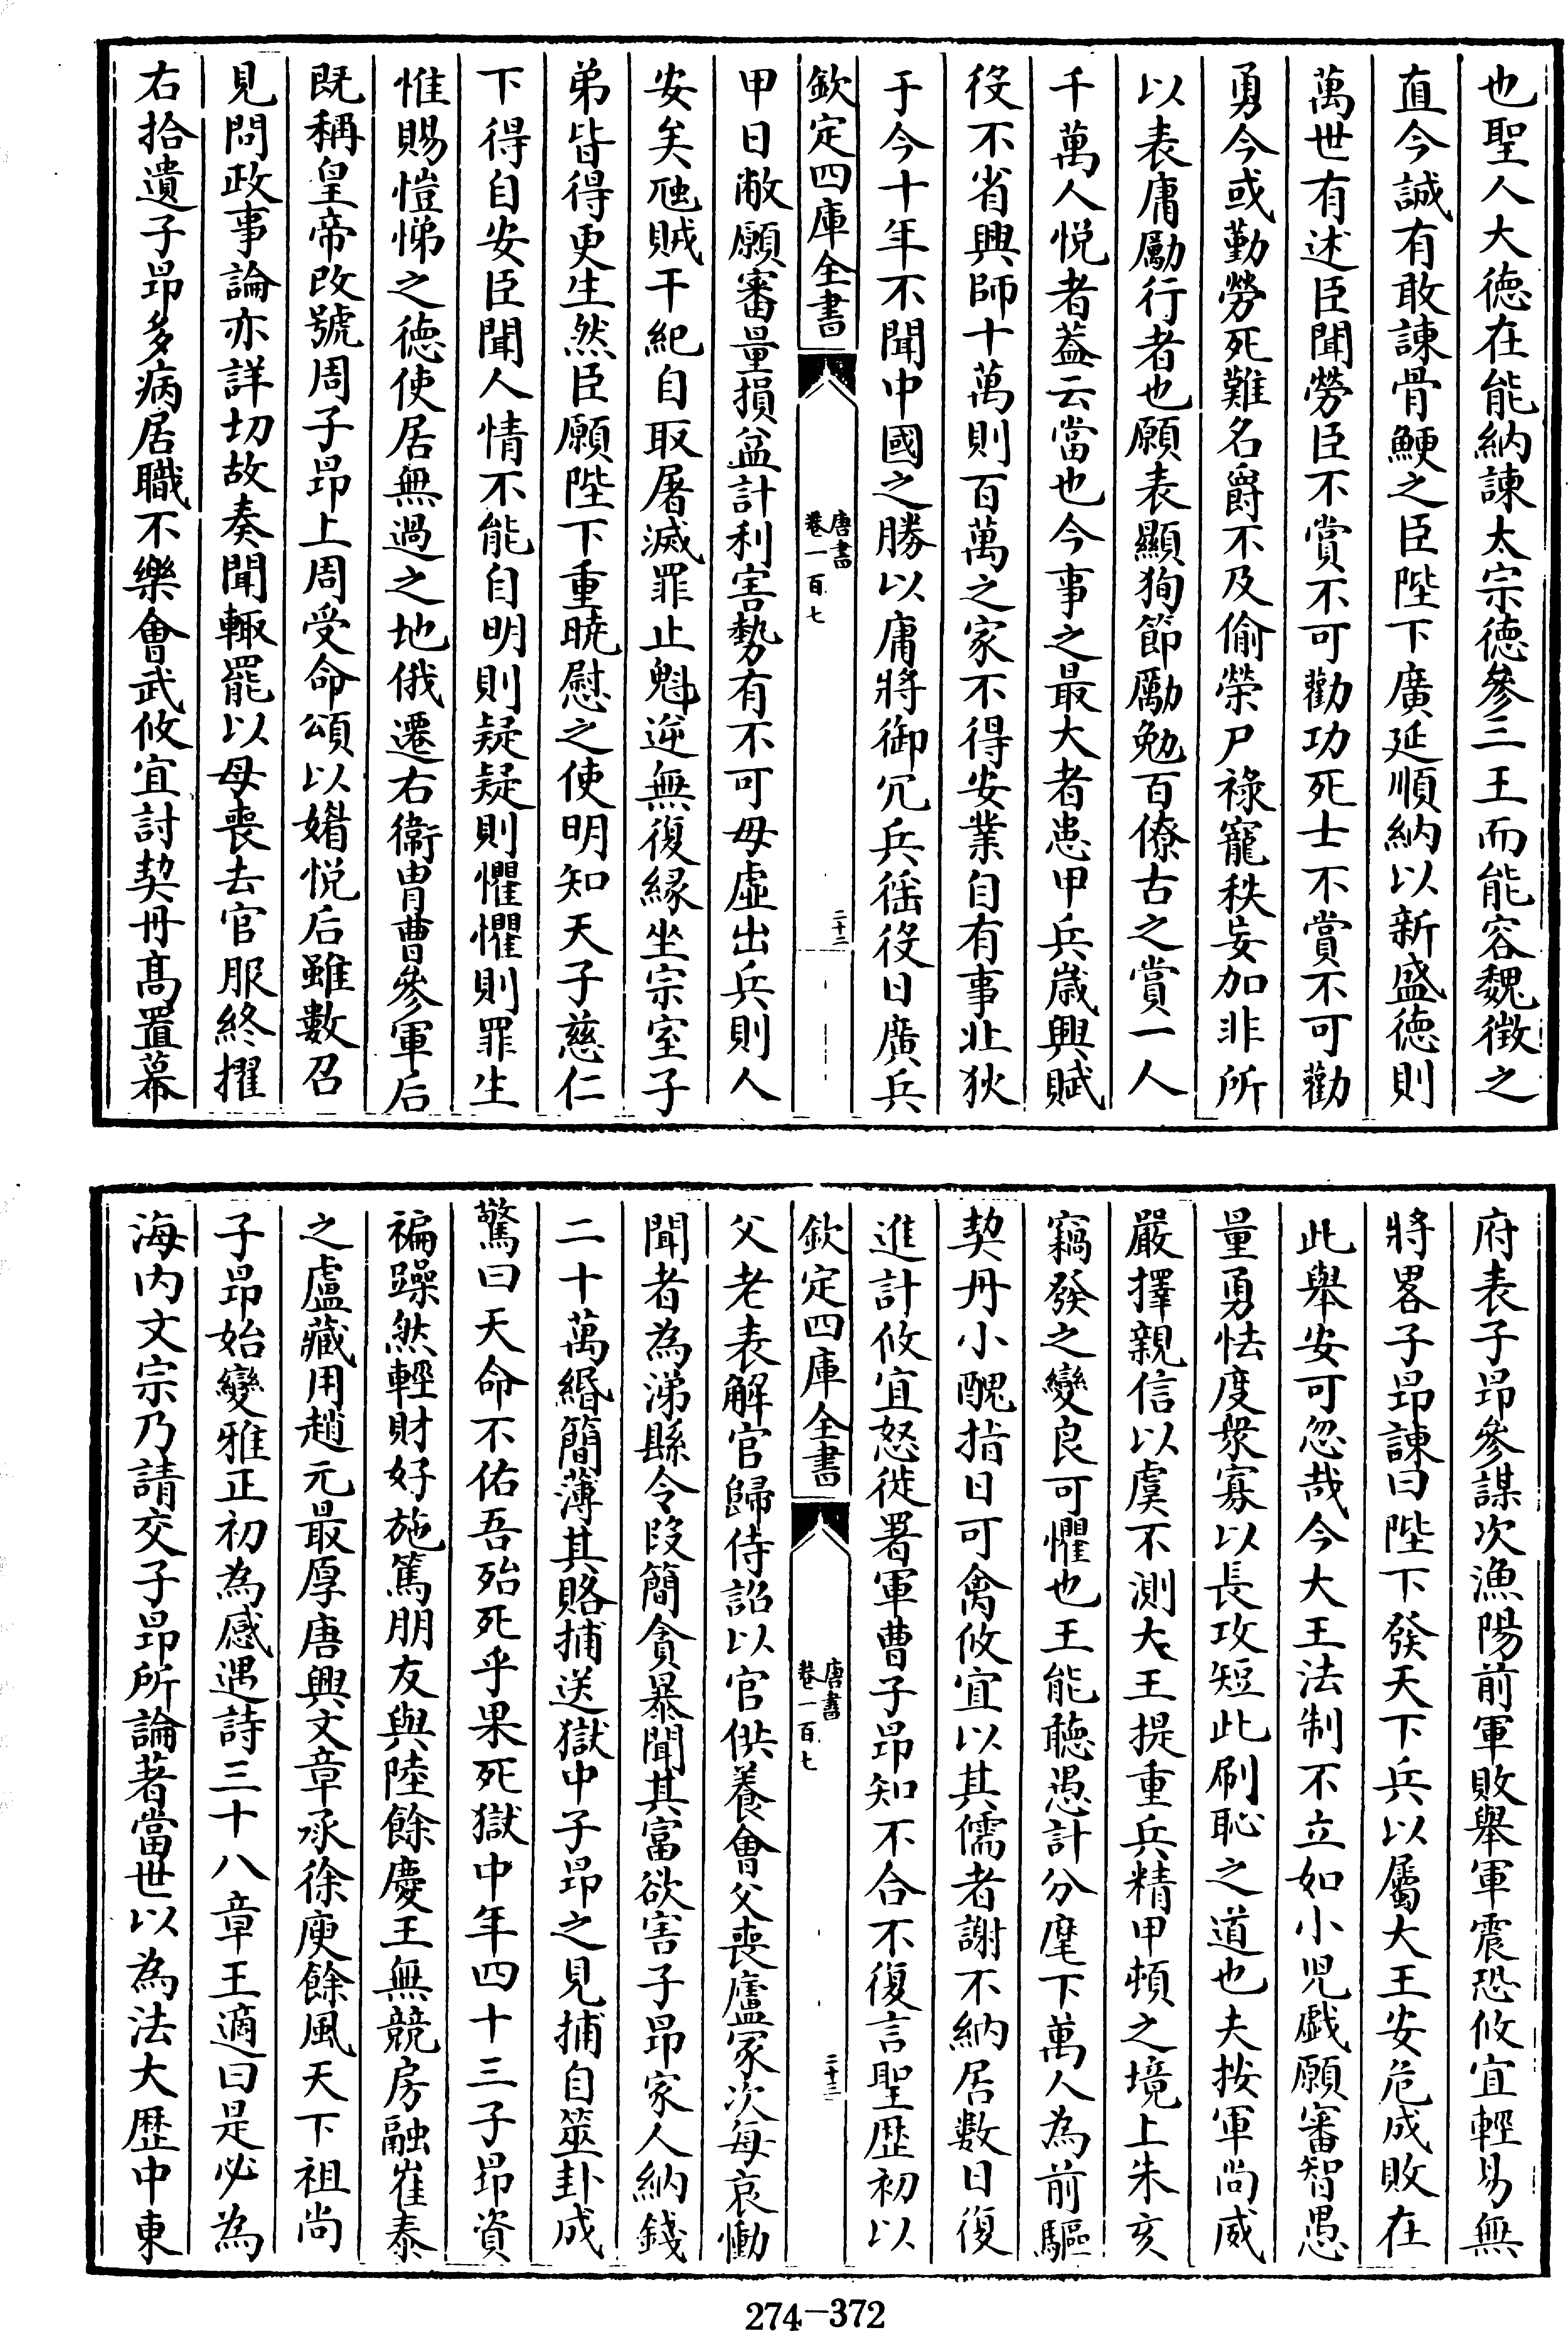 也聖人大徳在能納諫太宗徳參三王而能容魏徴之
直今誠有敢諫骨鯁之臣陛下廣延順納以新盛徳則
萬世有述臣聞勞臣不賞不可勸功死士不賞不可勸
勇今或勤勞死難名爵不及偷榮尸祿寵秩妄加非所
以表庸勵行者也願表顯狥節勵勉百僚古之賞一人
千萬人悦者葢云當也今事之最大者患甲兵嵗興賦
役不省興師十萬則百萬之家不得安業自有事北狄
于今十年不聞中國之勝以庸將御冗兵徭役日廣兵
欽定四庫全書
唐書
卷一百七
二十二
甲日敝願審量損益計利害勢有不可毋虛出兵則人
安矣虺賊干紀自取屠滅罪止魁逆無復縁坐宗室子
弟皆得更生然臣願陛下重曉慰之使明知天子慈仁
下得自安臣聞人情不能自明則疑疑則懼懼則罪生
惟賜愷悌之德使居無過之地俄遷右衞胄曹參軍后
既稱皇帝改號周子昻上周受命頌以媚悦后雖數召
見問政事論亦詳切故奏聞輙罷以母喪去官服終擢
右拾遺子昻多病居職不樂會武攸宜討契丹髙置幕
府表子昻參謀次漁陽前軍敗舉軍震恐攸宜輕易無
將畧子昻諫曰陛下發天下兵以屬大王安危成敗在
此舉安可忽哉今大王法制不立如小兒戲願審智愚
量勇怯度衆寡以長攻短此刷恥之道也夫按軍尚威
嚴擇親信以虞不測大王提重兵精甲頓之境上朱亥
竊發之變良可懼也王能聽愚計分麾下萬人為前驅
契丹小醜指日可禽攸宜以其儒者謝不納居數日復
進計攸宜怒徙署軍曹子昻知不合不復言聖歴初以
欽定四庫全書
唐書
卷一百七
二十三
父老表解官歸侍詔以官供養會父喪廬冢次每哀慟
聞者為涕縣令叚簡貪暴聞其富欲害子昻家人納錢
二十萬緡簡薄其賂捕送獄中子昻之見捕自筮卦成
驚曰天命不佑吾殆死乎果死獄中年四十三子昻資
褊躁然輕財好施篤朋友與陸餘慶王無競房融崔泰
之盧藏用趙元最厚唐興文章承徐庾餘風天下祖尚
子昻始變雅正初為感遇詩三十八章王適曰是必為
海内文宗乃請交子昻所論著當世以為法大歴中東
274-372